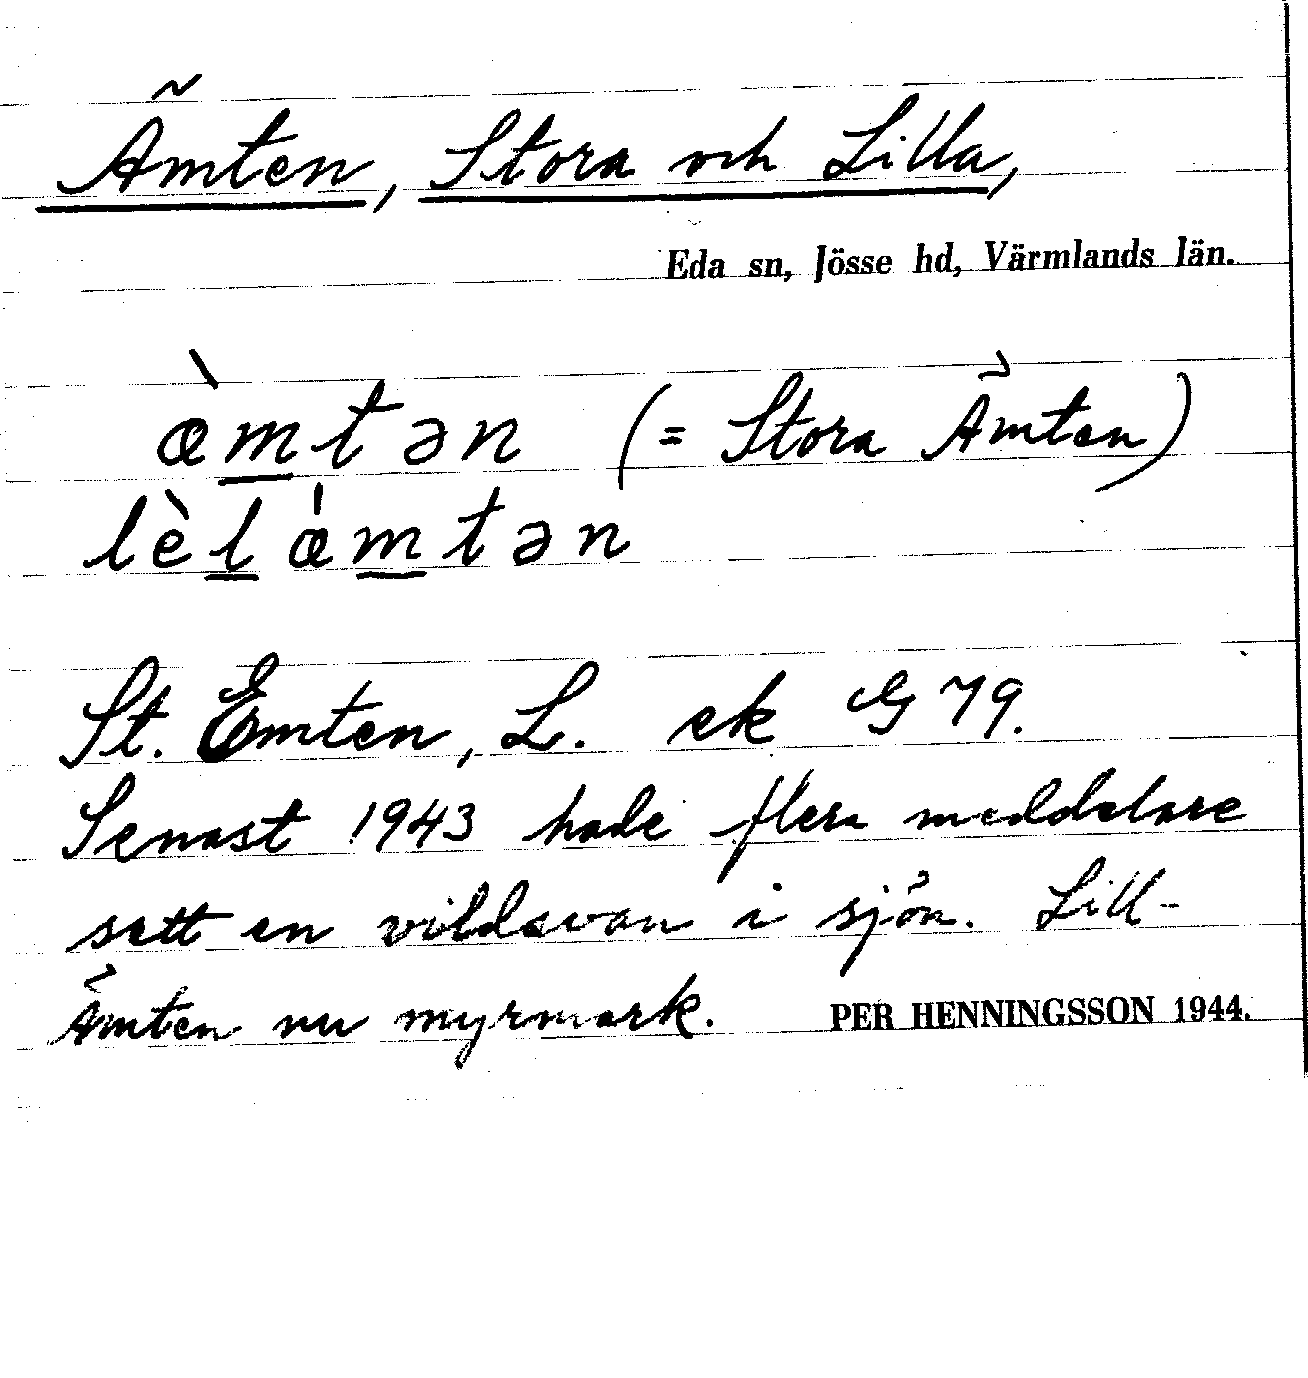 Ämten, Stora och Lilla,
Eda sn, Jösse hd, Värmlands län.
æ̀m̲tən (= Stora Ämten)
lèl̲ǽm̲tən
St. Emten, L. ek G 79.
Senast 1943 hade flera meddelare
sett en vildsvan i sjön. Lill-
Ämten nu myrmark.
PER HENNINGSSON 1944.